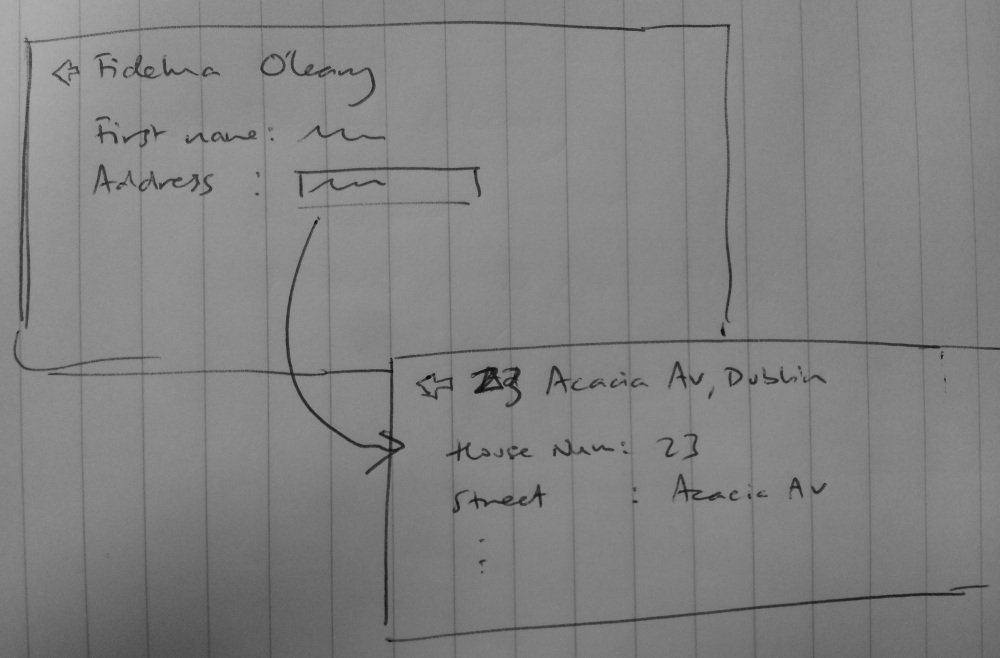 Fidelma O'Leary
First name:
Address :
23 Acacia Av, Dublin
House Num: 23
Street : Acacia Av